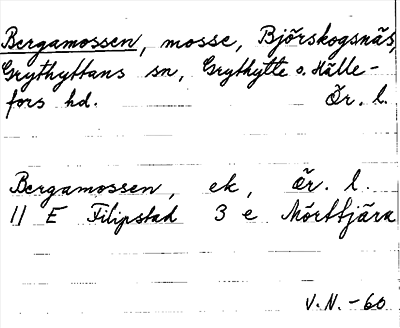 Bergamossen, mosse, Björskogsnäs,
Grythyttans sn, Grythytte o. Hälle-
fors hd. Ör. l.
Bergamossen, ek, Ör. l.
11 E Filipstad 3 e Mörttjärn
V.N. -60